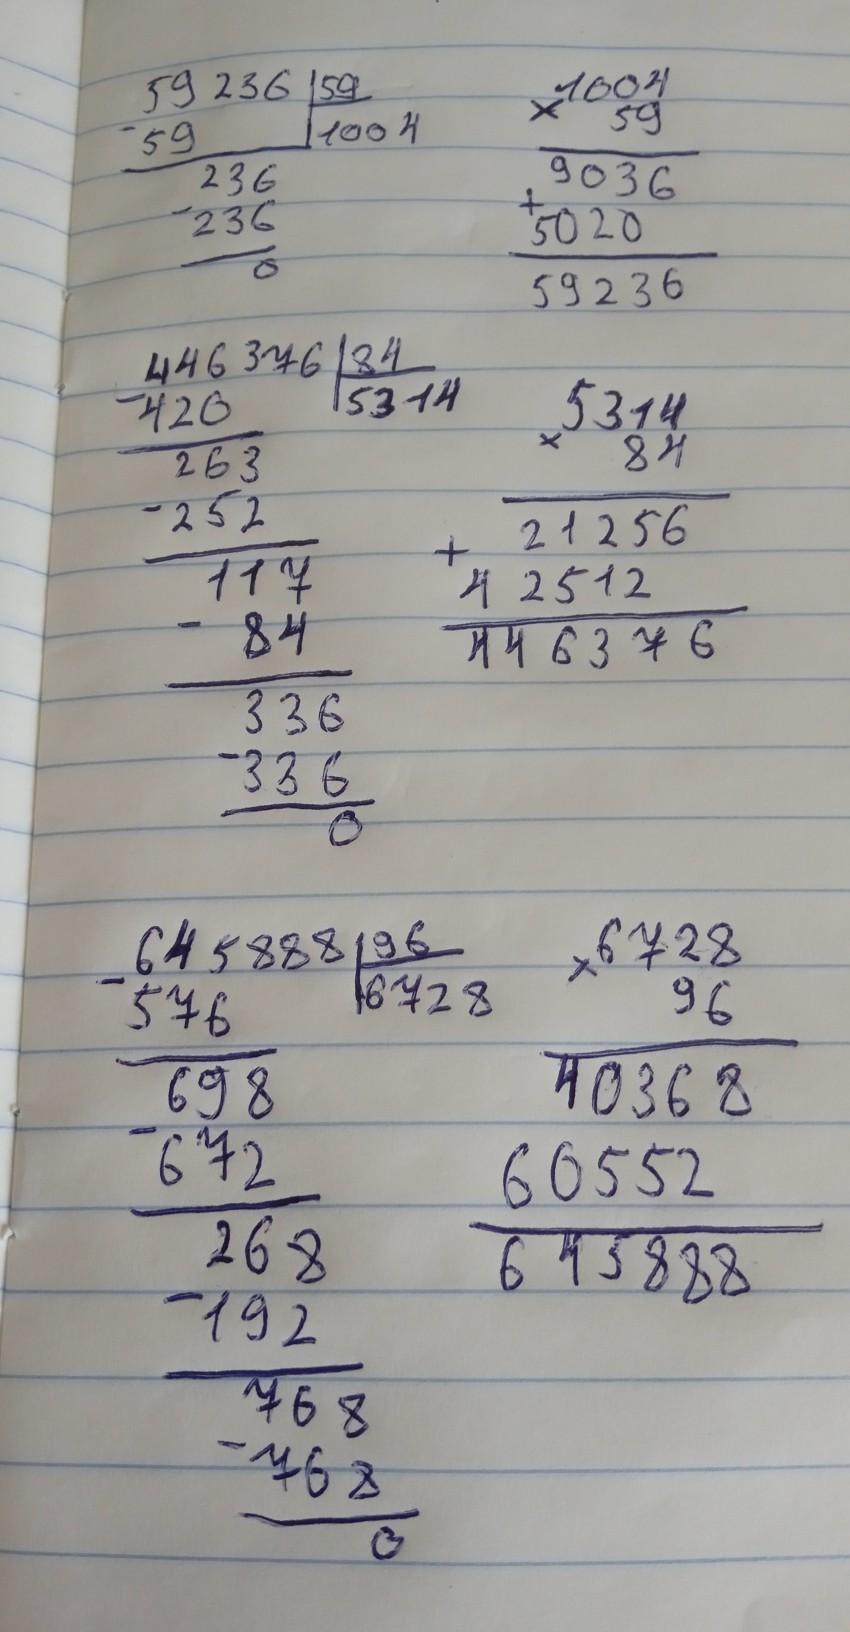 59 236 59
- 59 1004
236
- 236
0
× 1004
59
9036
+
5020
59236
446376 84
- 420 5314
263
- 252
117
- 84
336
- 336
0
5314
× 84
21256
+
42512
446376
645888 96
- 576 6728
698
- 672
268
- 192
768
- 768
0
× 6728
96
40368
60552
645888